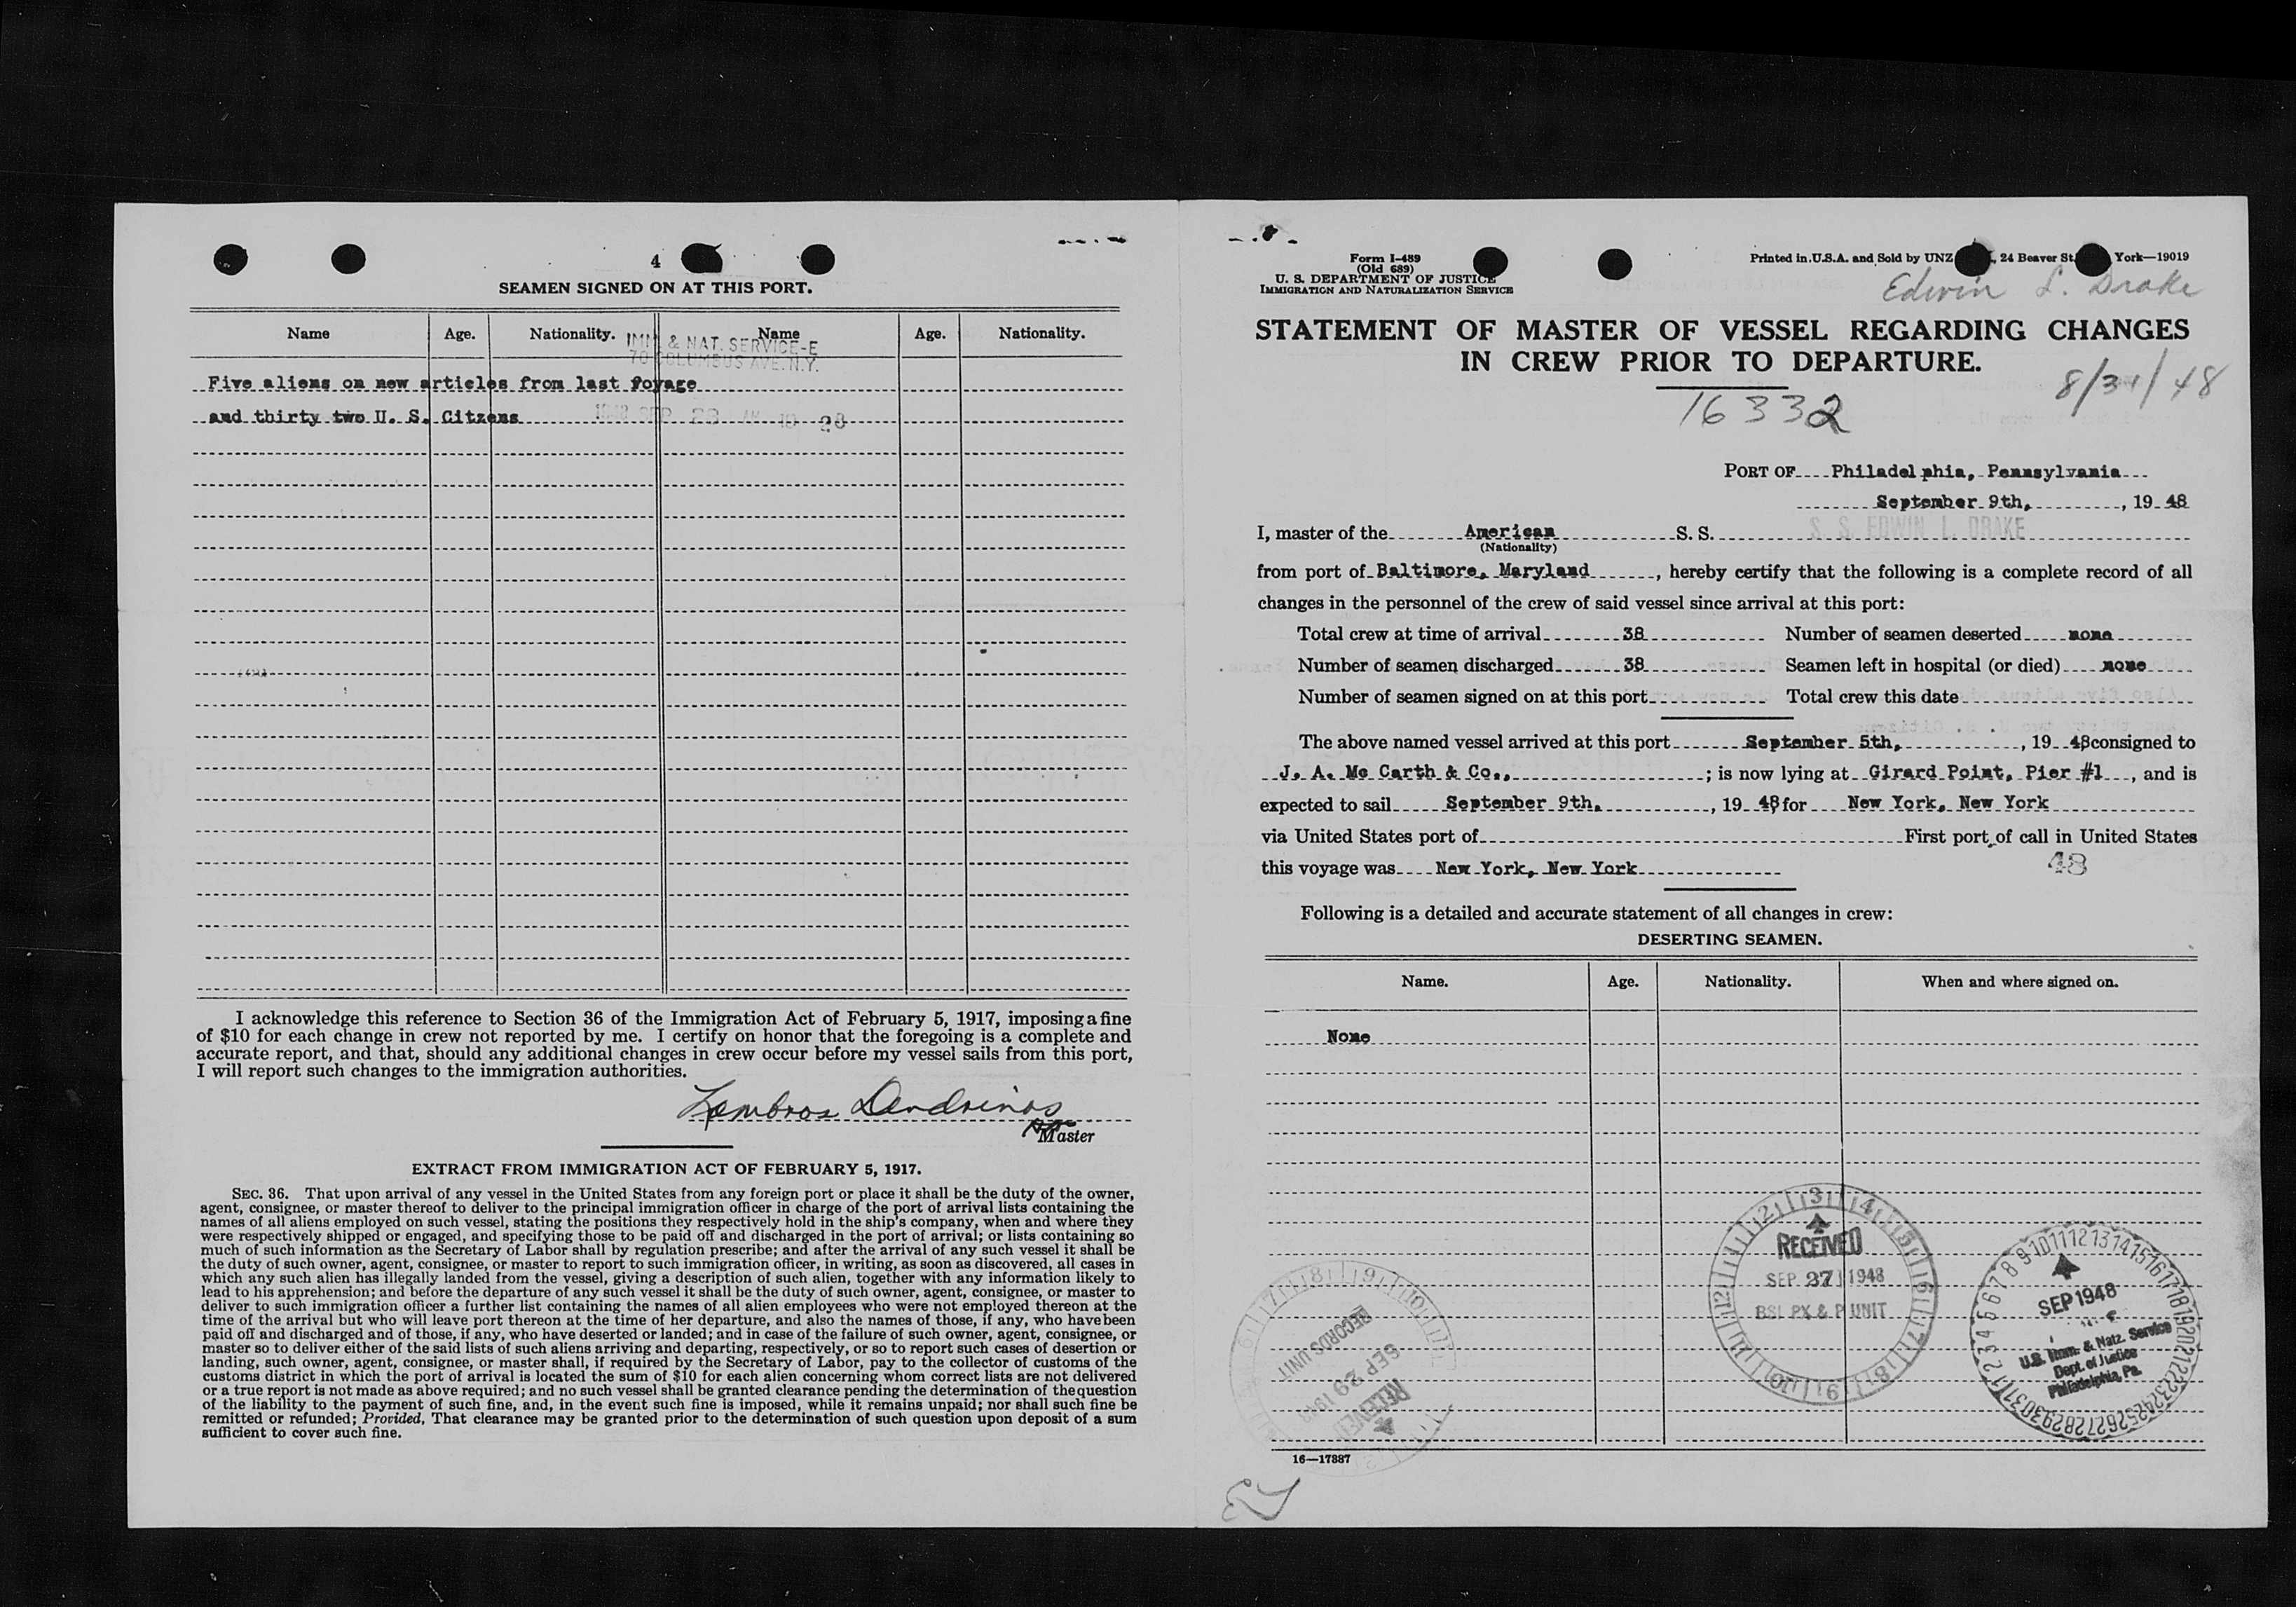 4
SEAMEN SIGNED ON AT THIS PORT.
Name Age. Nationality. Name Age. Nationality.
IMM & NAT. SERVICE-E
70 COLUMBUS AVE. N.Y.
Five aliens on new articles from last voyage
and thirty two U. S. Citzens
SEP 28 AM 10 28
I acknowledge this reference to Section 36 of the Immigration Act of February 5, 1917, imposing a fine
of $10 for each change in crew not reported by me. I certify on honor that the foregoing is a complete and
accurate report, and that, should any additional changes in crew occur before my vessel sails from this port,
I will report such changes to the immigration authorities.
Lambros Dendrinos
Master
EXTRACT FROM IMMIGRATION ACT OF FEBRUARY 5, 1917.
SEC. 36. That upon arrival of any vessel in the United States from any foreign port or place it shall be the duty of the owner,
agent, consignee, or master thereof to deliver to the principal immigration officer in charge of the port of arrival lists containing the
names of all aliens employed on such vessel, stating the positions they respectively hold in the ship's company, when and where they
were respectively shipped or engaged, and specifying those to be paid off and discharged in the port of arrival; or lists containing so
much of such information as the Secretary of Labor shall by regulation prescribe; and after the arrival of any such vessel it shall be
the duty of such owner, agent, consignee, or master to report to such immigration officer, in writing, as soon as discovered, all cases in
which any such alien has illegally landed from the vessel, giving a description of such alien, together with any information likely to
lead to his apprehension; and before the departure of any such vessel it shall be the duty of such owner, agent, consignee, or master to
deliver to such immigration officer a further list containing the names of all alien employees who were not employed thereon at the
time of the arrival but who will leave port thereon at the time of her departure, and also the names of those, if any, who have been
paid off and discharged and of those, if any, who have deserted or landed; and in case of the failure of such owner, agent, consignee, or
master so to deliver either of the said lists of such aliens arriving and departing, respectively, or so to report such cases of desertion or
landing, such owner, agent, consignee, or master shall, if required by the Secretary of Labor, pay to the collector of customs of the
customs district in which the port of arrival is located the sum of $10 for each alien concerning whom correct lists are not delivered
or a true report is not made as above required; and no such vessel shall be granted clearance pending the determination of the question
of the liability to the payment of such fine, and, in the event such fine is imposed, while it remains unpaid; nor shall such fine be
remitted or refunded; Provided, That clearance may be granted prior to the determination of such question upon deposit of a sum
sufficient to cover such fine.
Form I-489
(Old 689)
U. S. DEPARTMENT OF JUSTICE
IMMIGRATION AND NATURALIZATION SERVICE
Printed in U.S.A. and Sold by UNZ 24 Beaver St. York—19019
Edwin L. Drake
STATEMENT OF MASTER OF VESSEL REGARDING CHANGES
IN CREW PRIOR TO DEPARTURE.
16332
8/31/48
PORT OF Philadelphia, Pennsylvania
September 9th, , 19 48
I, master of the American S. S. S. S. EDWIN L. DRAKE
(Nationality)
from port of Baltimore, Maryland , hereby certify that the following is a complete record of all
changes in the personnel of the crew of said vessel since arrival at this port:
Total crew at time of arrival 38 Number of seamen deserted none
Number of seamen discharged 38 Seamen left in hospital (or died) none
Number of seamen signed on at this port Total crew this date
The above named vessel arrived at this port September 5th, , 19 48 consigned to
J. A. Mc Carth & Co., ; is now lying at Girard Point, Pier #1 , and is
expected to sail September 9th, , 19 48 for New York, New York
via United States port of First port of call in United States
this voyage was New York, New York
48
Following is a detailed and accurate statement of all changes in crew:
DESERTING SEAMEN.
Name. Age. Nationality. When and where signed on.
None
RECEIVED
SEP 27 1948
BSI PX & P UNIT
SEP 1948
U.S. Imm. & Natz. Service
Dept. of Justice
Philadelphia, Pa.
RECEIVED
SEP 29 1948
RECORDS UNIT
16—17887